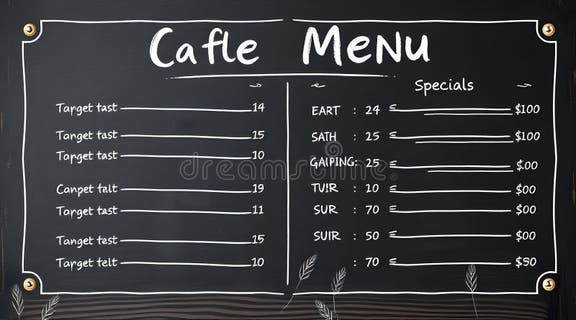 Cafle Menu
Target tast 14
Target tast 15
Target tast 10
Canpet talt 19
Target tast 11
Target test 15
Target telt 10
Specials
EART : 24 $100
SATH : 25 $100
GAIPING: 25 $.00
TUIR : 10 $00
SUR : 70 $00
SUIR : 50 $00
: 70 $50
dreamstime